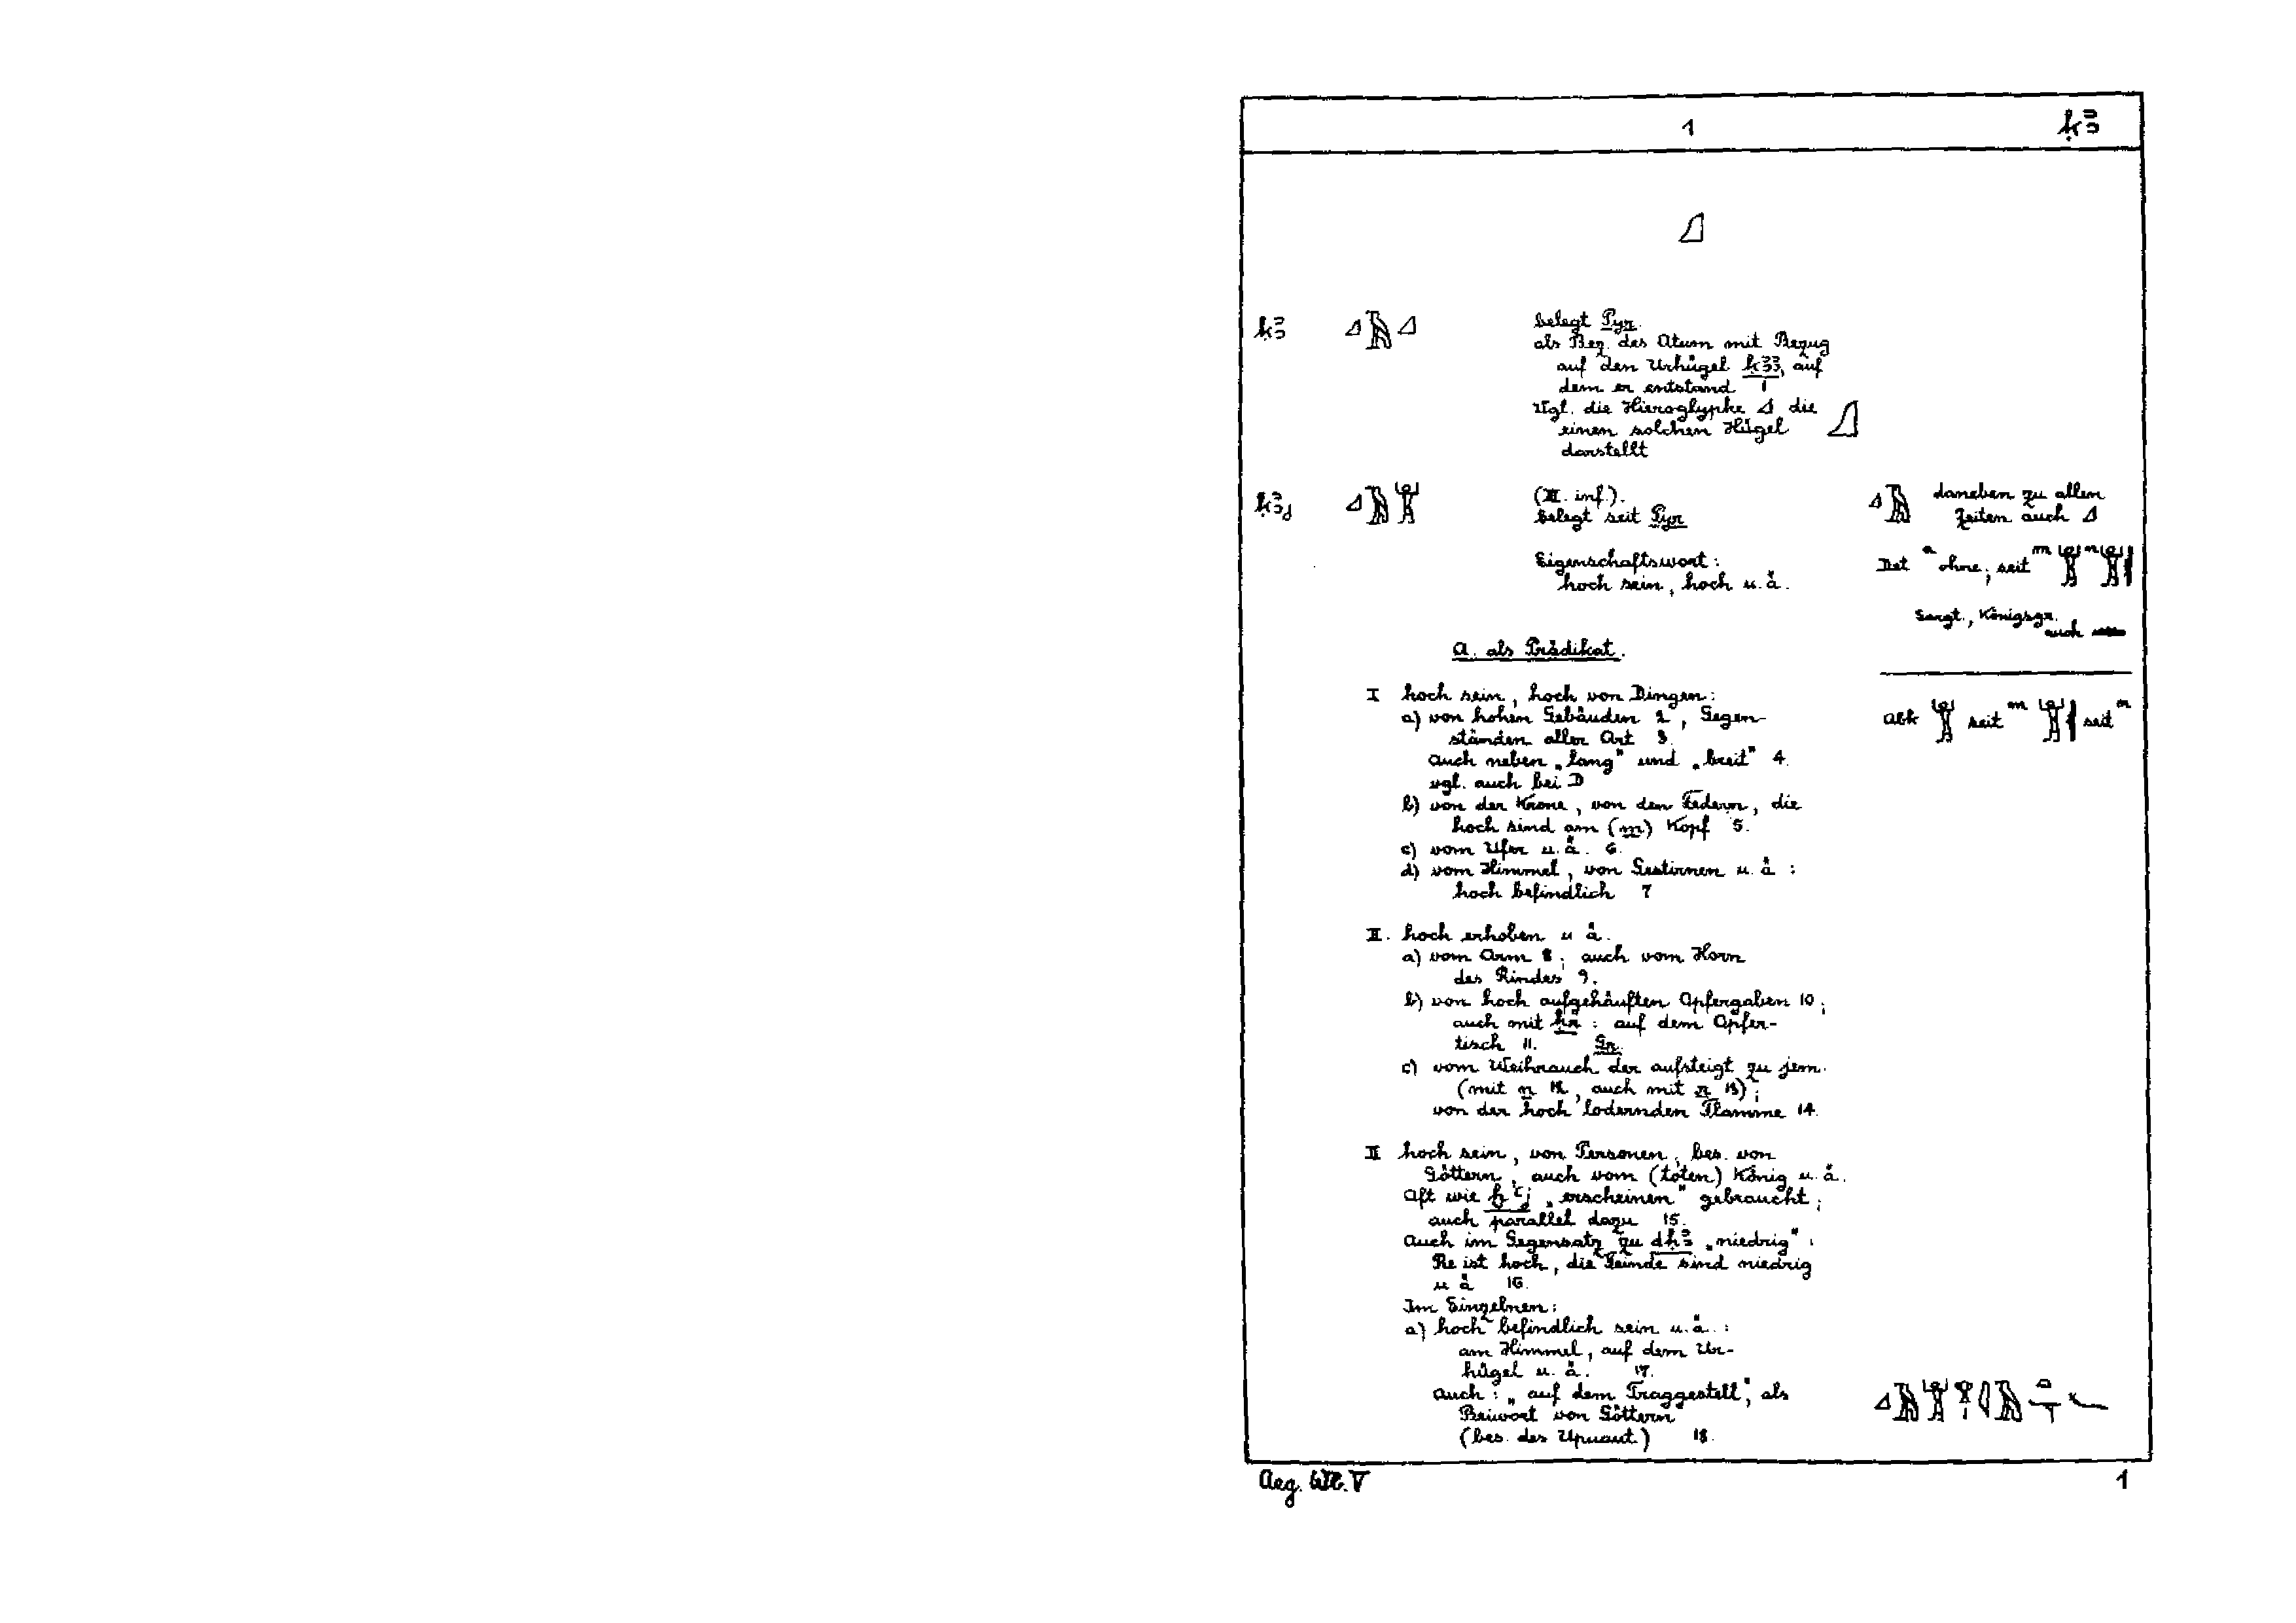 1 ḳꜣ
ḳꜣ belegt Pyr.
als Bez. des Atum mit Bezug
auf den Urhügel ḳꜣꜣ, auf
dem er entstand 1
Vgl. die Hieroglyphe 𓈎 die
einen solchen Hügel
darstellt
ḳꜣj (III. inf.). daneben zu allen
belegt seit Pyr Zeiten auch 𓈎
Eigenschaftswort: Det ohne, seit
hoch sein, hoch u. ä.
Sargt., Königsgr.
auch
A. als Prädikat.
I hoch sein, hoch von Dingen:
a) von hohen Gebäuden 2, Gegen- Abk seit seit
ständen aller Art 3.
Auch neben „lang" und „breit" 4.
vgl. auch bei D
b) von der Krone, von den Federn, die
hoch sind am (m) Kopf 5.
c) vom Ufer u. ä. 6.
d) vom Himmel, von Gestirnen u. ä :
hoch befindlich 7
II. hoch erhoben u ä.
a) vom Arm 8; auch vom Horn
des Rindes 9.
b) von hoch aufgehäuften Opfergaben 10;
auch mit ḥr : auf dem Opfer-
tisch 11. Gr.
c) vom Weihrauch der aufsteigt zu jem.
(mit n 12, auch mit r 13);
von der hoch lodernden Flamme 14.
III hoch sein, von Personen, bes. von
Göttern, auch vom (toten) König u. ä.
Oft wie ḫꜥj „erscheinen" gebraucht;
auch parallel dazu 15.
Auch im Gegensatz zu dḥꜣ „niedrig" :
Re ist hoch, die Feinde sind niedrig
u ä 16.
Im Einzelnen:
a) hoch befindlich sein u. ä. :
am Himmel, auf dem Ur-
hügel u. ä. 17.
Auch : „auf dem Traggestell", als
Beiwort von Göttern
(bes. des Upuaut) 18.
Aeg. Wb. V 1